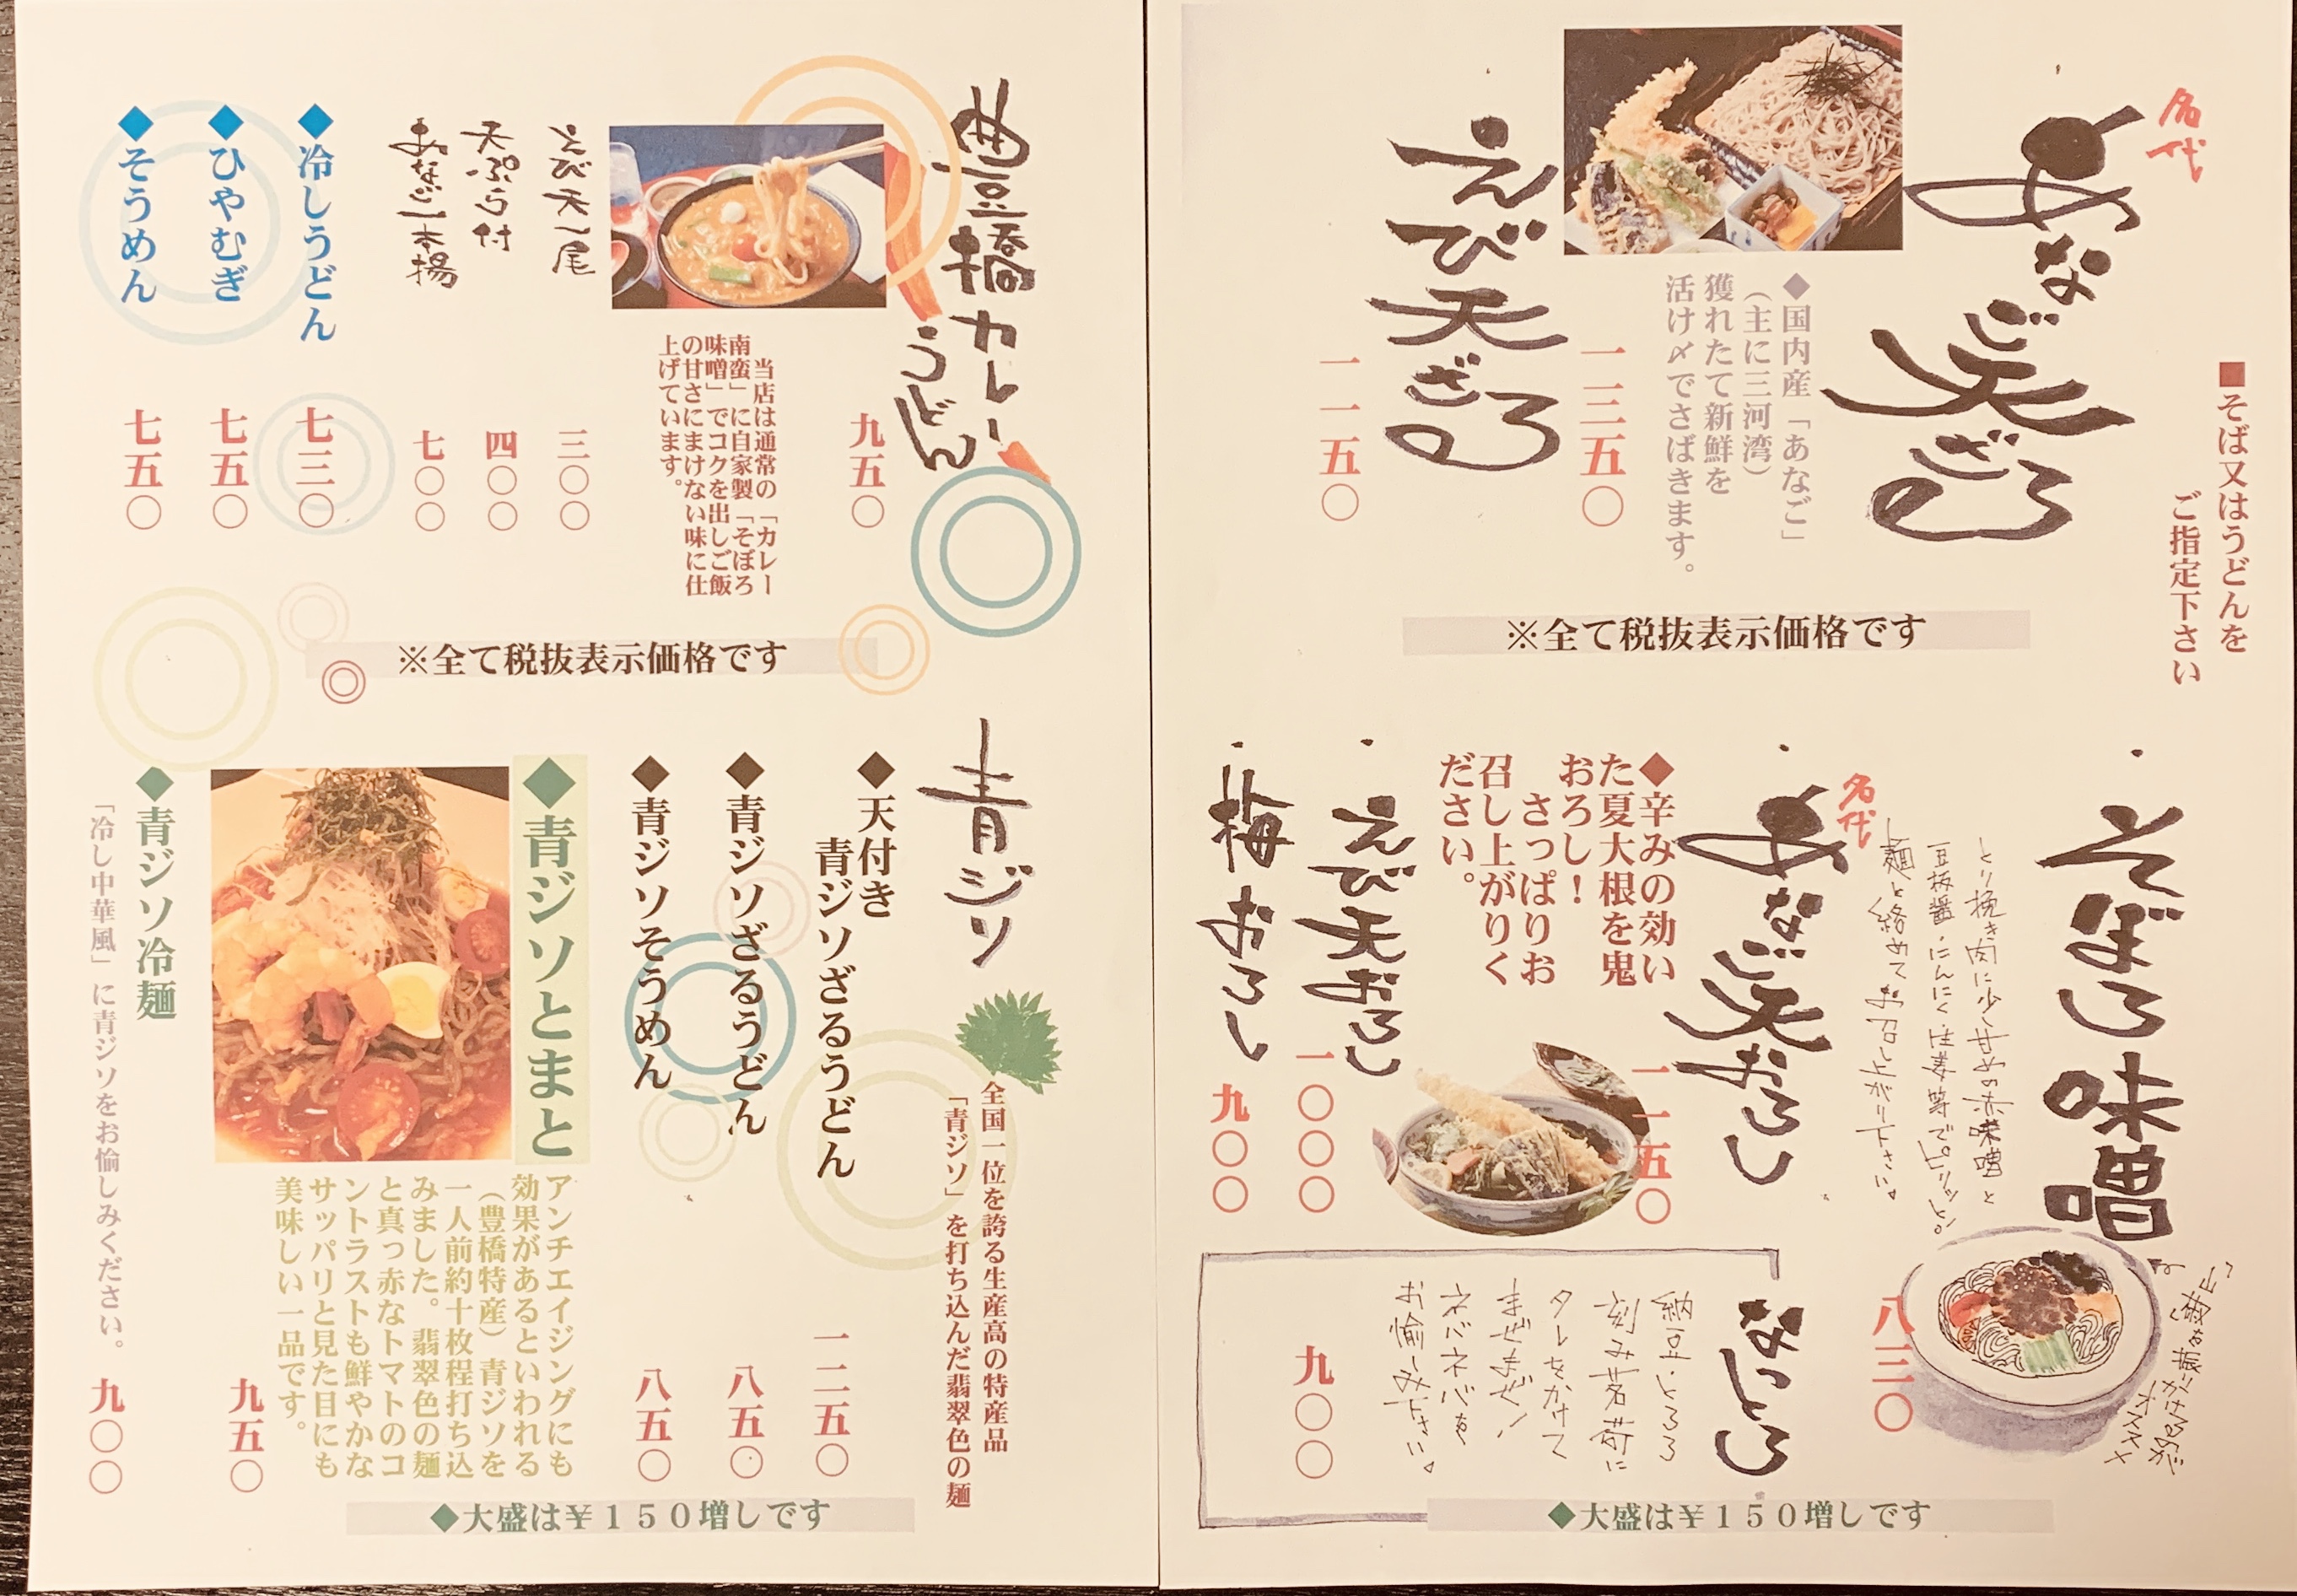 ■そば又はうどんを
ご指定下さい
名代
あなご天ざる
◆国内産「あなご」
（主に三河湾）
獲れたて新鮮を
活け〆でさばきます。
一三五〇
えび天ざる
一一五〇
※全て税抜表示価格です
そぼろ味噌
とり挽き肉に少し甘めの赤味噌と
豆板醤・にんにく・生姜等でピリッと。
麺と絡めてお召し上がり下さい。
八三〇
名代
あなご天おろし
一一五〇
◆辛みの効い
た夏大根を鬼
おろし！
さっぱりお
召し上がりく
ださい。
えび天おろし
一〇〇〇
梅おろし
九〇〇
なっとろ
納豆・とろろ
刻み茗荷に
タレをかけて
まぜまぜ！
ネバネバを
お愉しみ下さい。
九〇〇
◆大盛は￥１５０増しです
豊橋カレー
うどん
九五〇
当店は通常の「カレー
南蛮」に自家製「そぼろ
味噌」でコクを出しご飯
の甘さにまけない味に仕
上げています。
えび天一尾
三〇〇
天ぷら付
四〇〇
あなご一本揚
七〇〇
◆冷しうどん
七三〇
◆ひやむぎ
七五〇
◆そうめん
七五〇
※全て税抜表示価格です
青ジソ
全国一位を誇る生産高の特産品
「青ジソ」を打ち込んだ翡翠色の麺
◆天付き
青ジソざるうどん
一二五〇
◆青ジソざるうどん
八五〇
◆青ジソそうめん
八五〇
◆青ジソとまと
アンチエイジングにも
効果があるといわれる
（豊橋特産）青ジソを
一人前約十枚程打ち込
みました。翡翠色の麺
と真っ赤なトマトのコ
ントラストも鮮やかな
サッパリと見た目にも
美味しい一品です。
九五〇
◆青ジソ冷麺
「冷し中華風」に青ジソをお愉しみください。
九〇〇
◆大盛は￥１５０増しです